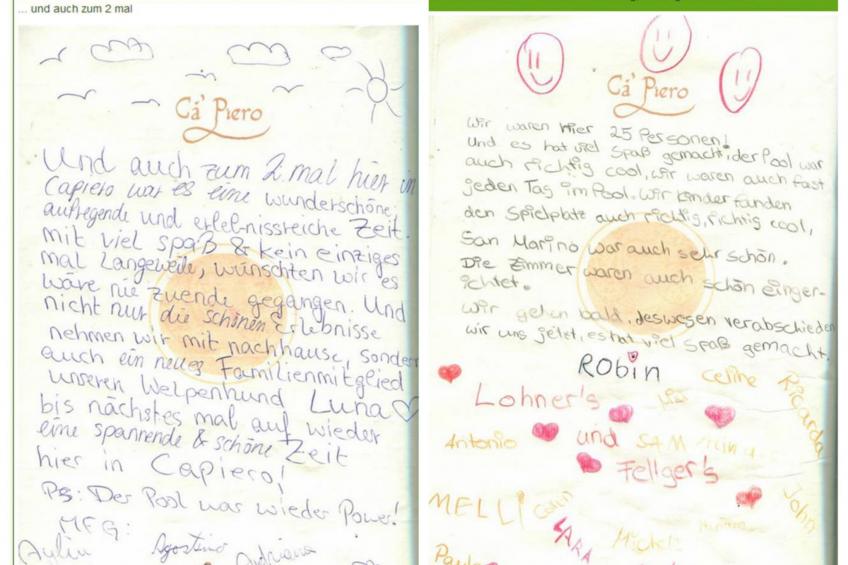 ... und auch zum 2 mal
Ca' Piero
Und auch zum 2. mal hier in
Capiero war es eine wunderschöne,
aufregende und erlebnissreiche Zeit.
mit viel spaß & kein einziges
mal Langeweile, wünschten wir es
wäre nie zuende gegangen. Und
nicht nur die schönen Erlebnisse
nehmen wir mit nachhause, sondern
auch ein neues Familienmitglied
unseren Welpenhund Luna
bis nächstes mal auf wieder
eine spannende & schöne Zeit
hier in Capiero!
PS: Der Pool war wieder Power!
MFG:
Aylin Agostino Adriana
Ca' Piero
Wir waren hier 25 Personen!
Und es hat viel Spaß gemacht, der Pool war
auch richtig cool, wir waren auch fast
jeden Tag im Pool. Wir kinder fanden
den Spielplatz auch richtig, richtig cool,
San Marino war auch sehr schön.
Die Zimmer waren auch schön einger-
ichtet.
Wir gehen bald, deswegen verabschieden
wir uns jetzt, es hat viel Spaß gemacht.
Robin
Celine Riccarda
Lohner's
Antonio und
Fellger's
MELLI Colin John
SARA Michele